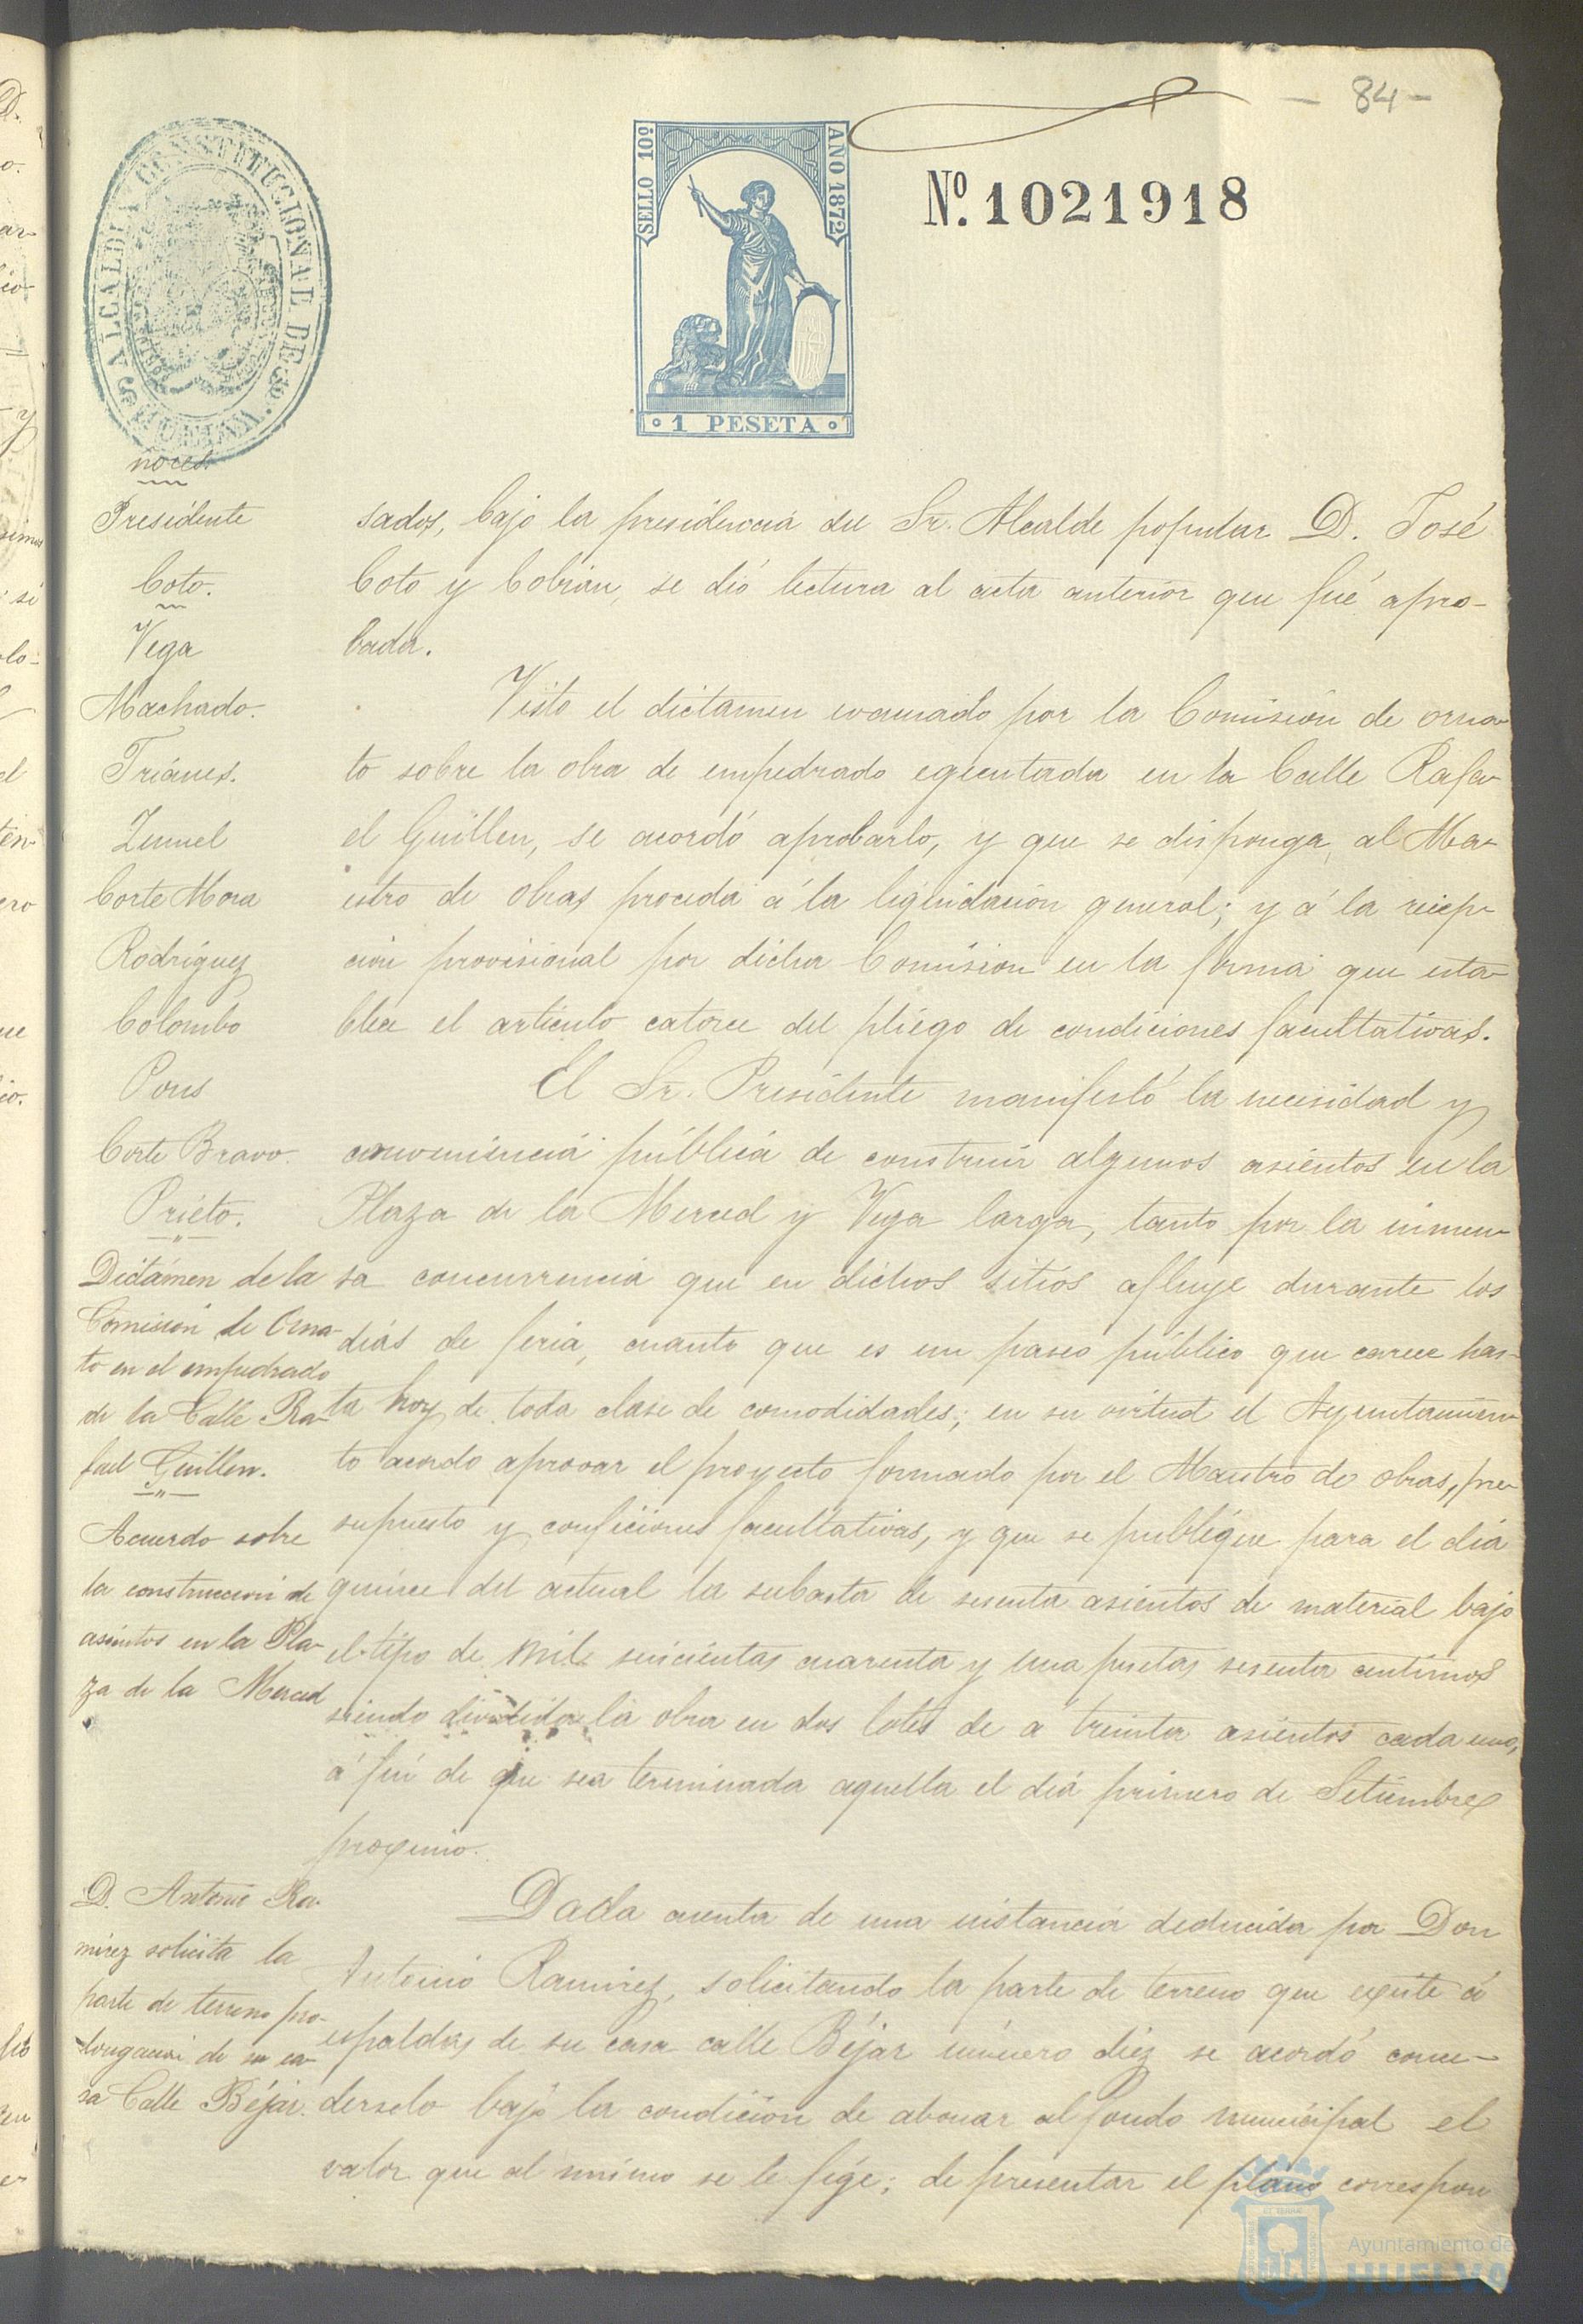 - 84 -
ALCALDIA CONSTITUCIONAL DE HUELVA
SELLO 10º
AÑO 1872
1 PESETA
Nº. 1021918
ñores
Presidente
Coto.
Vega
Machado.
Triánes.
Zumel
Corte Mora
Rodríguez
Colombo
Pons
Corte Bravo.
Prieto.
Dictámen de la
Comision de Orna-
to en el empedrado
de la Calle Ra-
fael Guillen.
Acuerdo sobre
la construccion de
asientos en la Pla-
za de la Merced
D. Antonio Ra-
mirez solicita la
parte de terreno pro-
longacion de su ca-
sa Calle Béjar.
sados, bajo la presidencia del Sr. Alcalde popular D. José
Coto y Cobian, se dió lectura al acta anterior que fué apro-
bada.
Visto el dictamen evacuado por la Comision de orna-
to sobre la obra de empedrado egecutada en la Calle Rafa-
el Guillen, se acordó aprobarlo, y que se disponga, al Ma-
estro de obras proceda á la liquidacion general; y á la recep-
cion provisional por dicha Comision en la forma que esta-
blece el articulo catorce del pliego de condiciones facultativas.
El Sr. Presidente manifestó la necesidad y
conveniencia pública de construir algunos asientos en la
Plaza de la Merced y Vega larga, tanto por la inmen-
sa concurrencia que en dichos sitios afluye durante los
dias de feria, cuanto que es un paseo público que carece has-
ta hoy de toda clase de comodidades; en su virtud el Ayuntamien-
to acordo aprovar el proyecto formado por el Maestro de obras, pre-
supuesto y condiciones facultativas, y que se publique para el dia
quince del actual la subasta de sesenta asientos de material bajo
el tipo de mil seiscientas cuarenta y una pesetas sesenta centimos
siendo dividida la obra en dos lotes de a treinta asientos cada uno,
á fin de que sea terminada aquella el dia primero de Setiembre
proximo.
Dada cuenta de una instancia deducida por Don
Antonio Ramirez, solicitando la parte de terreno que existe á
espaldas de su casa calle Béjar número diez se acordó conce-
derselo bajo la condicion de abonar al fondo municipal el
valor que al mismo se le fige; de presentar el plano correspon
Ayuntamiento de
HUELVA